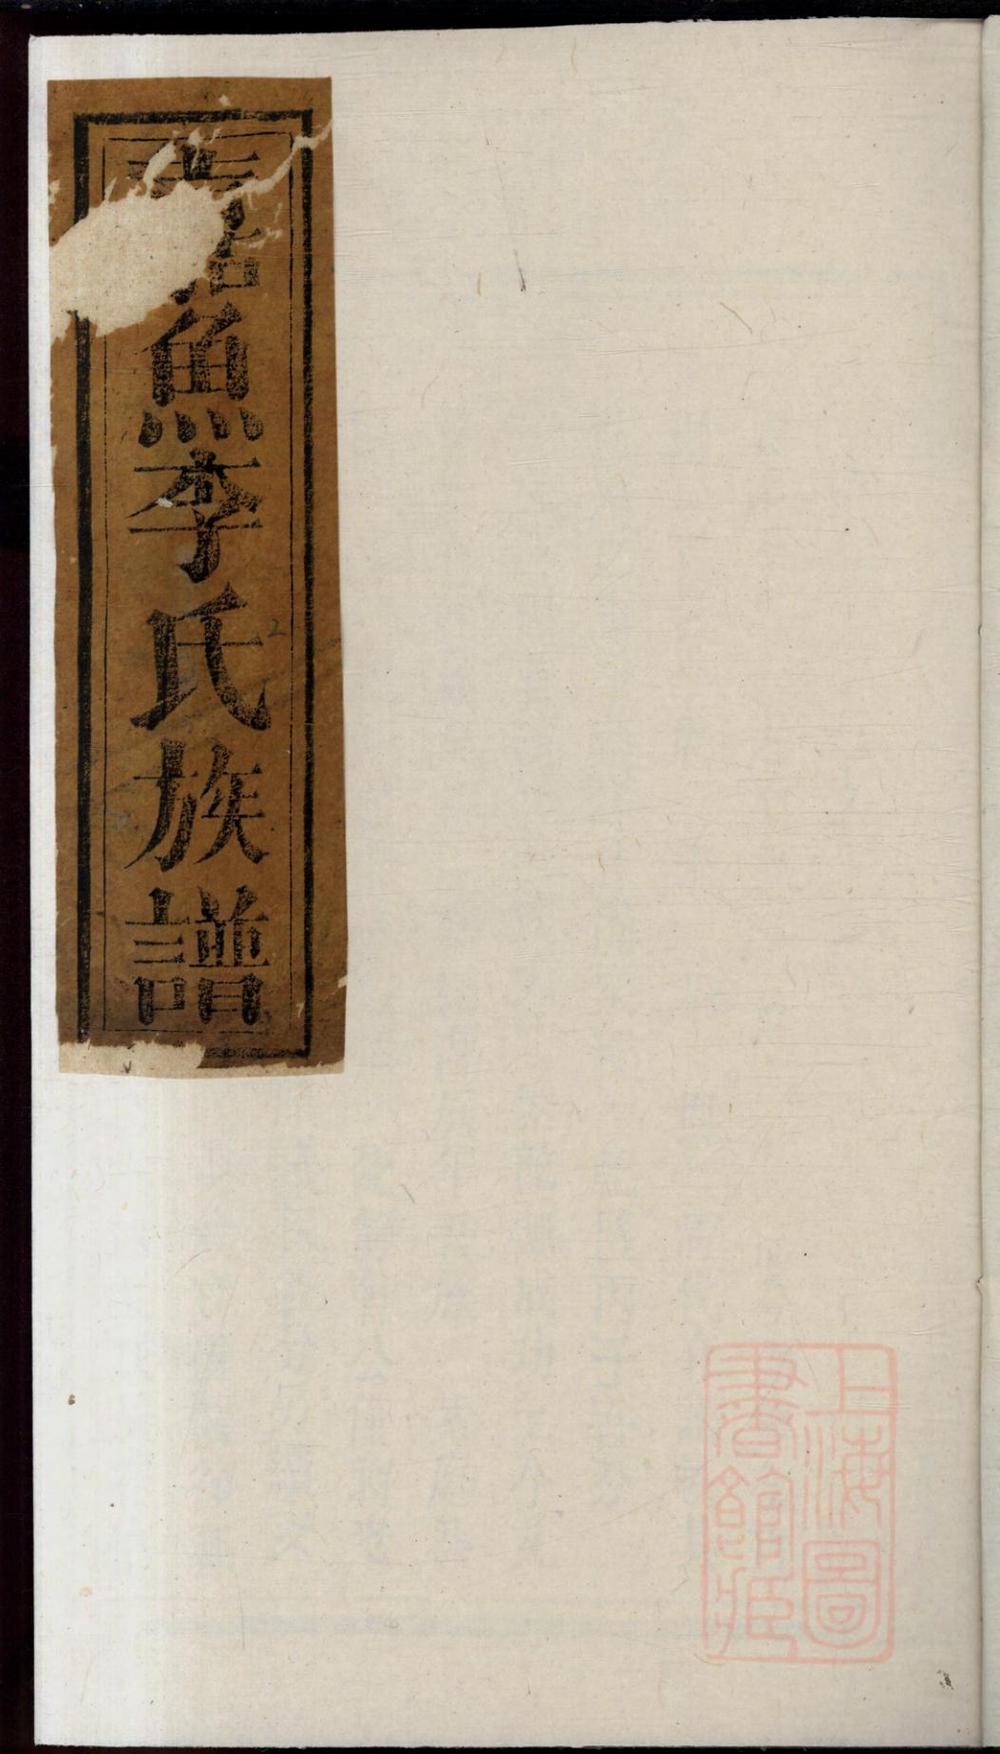 嘉魚李氏族譜
上海圖
書館藏